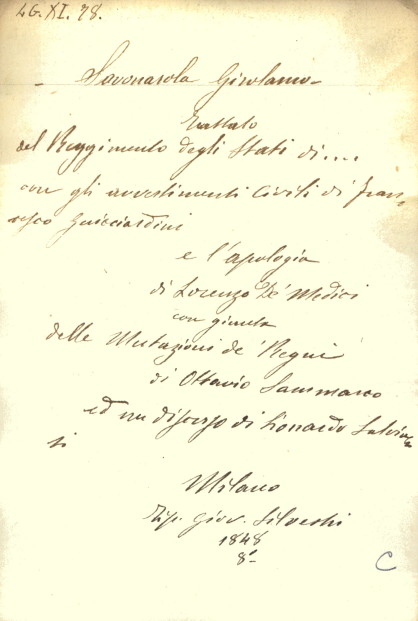 LG. XI. 78.
- Savonarola Girolamo -
Trattato
del Reggimento degli Stati di....
con gli avvertimenti civili di Fran-
cesco Guicciardini
e l'apologia
di Lorenzo De' Medici
con giunta
delle Mutazioni de' Regni
di Ottavio Sammarco
ed un discorso di Lionardo Salvia-
ti
Milano
Tip. Giov. Silvestri
1848
8°-
C